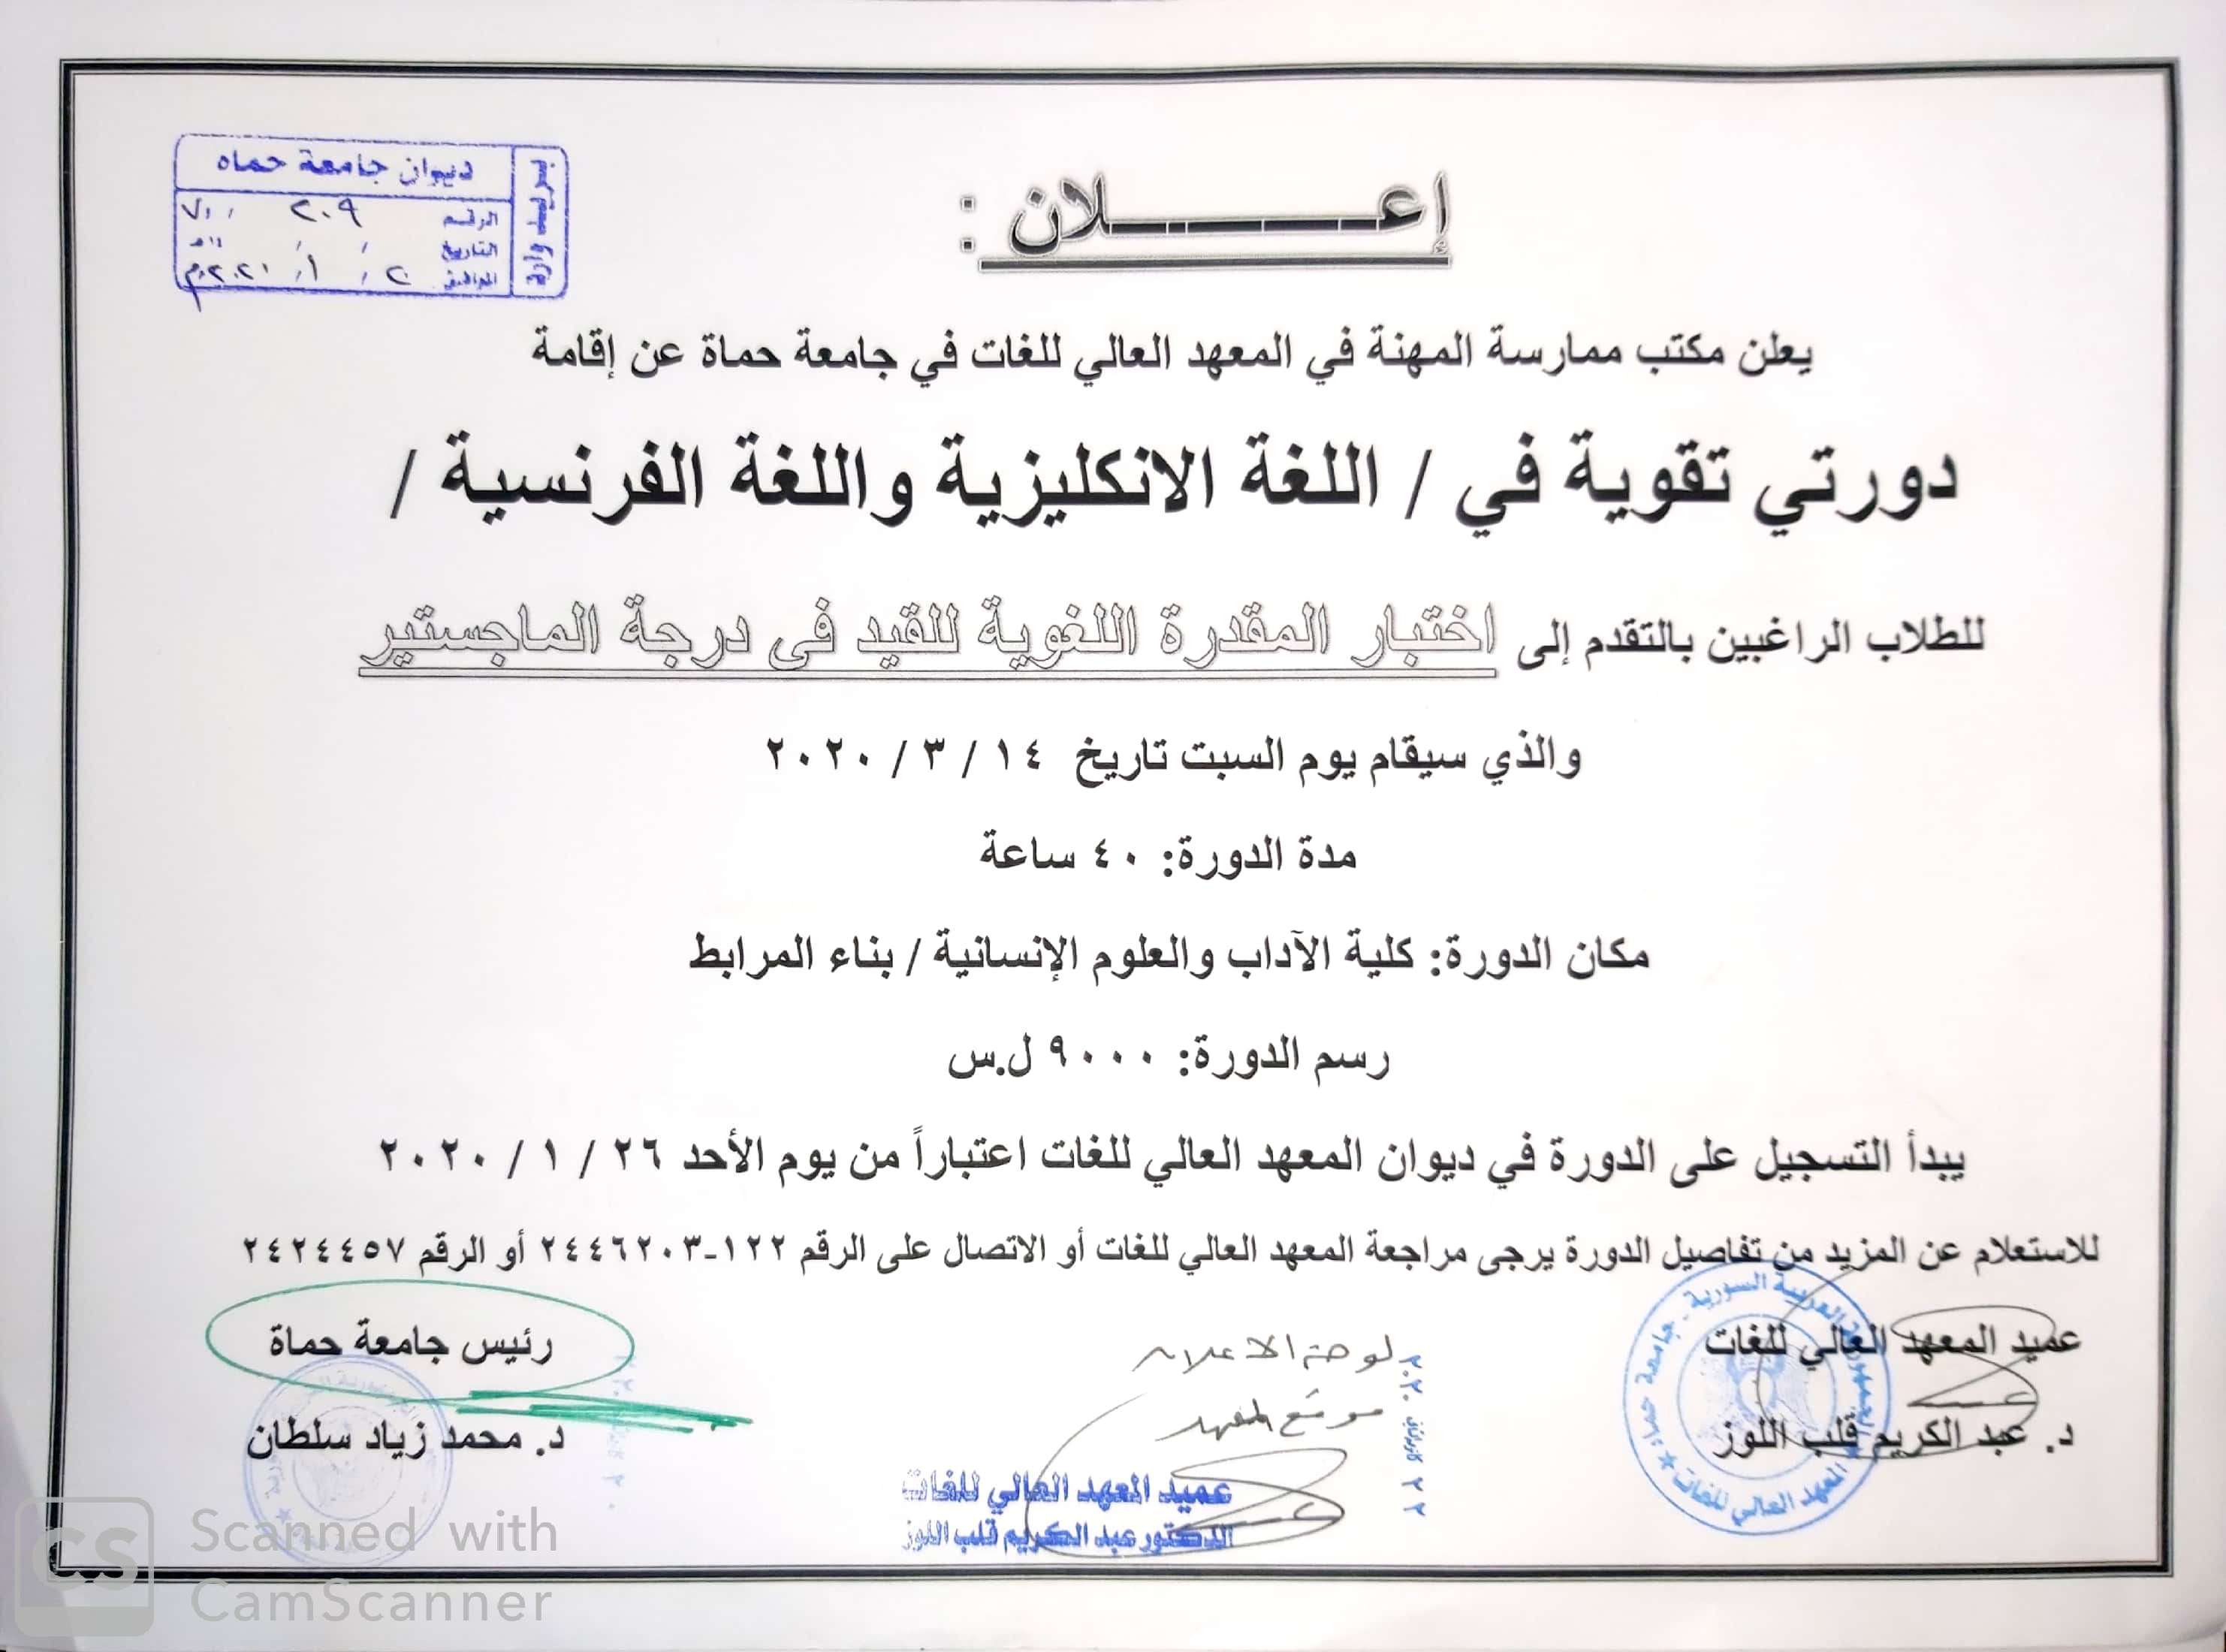 ديوان جامعة حماه
الرقم ٢٠٩
التاريخ
الموافق
إعـــــــلان :
يعلن مكتب ممارسة المهنة في المعهد العالي للغات في جامعة حماة عن إقامة
دورتي تقوية في / اللغة الانكليزية واللغة الفرنسية /
للطلاب الراغبين بالتقدم إلى اختبار المقدرة اللغوية للقيد في درجة الماجستير
والذي سيقام يوم السبت تاريخ ١٤ / ٣ / ٢٠٢٠
مدة الدورة: ٤٠ ساعة
مكان الدورة: كلية الآداب والعلوم الإنسانية / بناء المرابط
رسم الدورة: ٩٠٠٠ ل.س
يبدأ التسجيل على الدورة في ديوان المعهد العالي للغات اعتباراً من يوم الأحد ٢٦ / ١ / ٢٠٢٠
للاستعلام عن المزيد من تفاصيل الدورة يرجى مراجعة المعهد العالي للغات أو الاتصال على الرقم ١٢٢-٢٤٤٦٢٠٣ أو الرقم ٢٤٢٤٤٥٧
عميد المعهد العالي للغات
د. عبد الكريم قلب اللوز
المعهد العالي للغات
لوحة الاعلان
موقع المعهد
عميد المعهد العالي للغات
الدكتور عبد الكريم قلب اللوز
رئيس جامعة حماة
د. محمد زياد سلطان
CS Scanned with
CamScanner